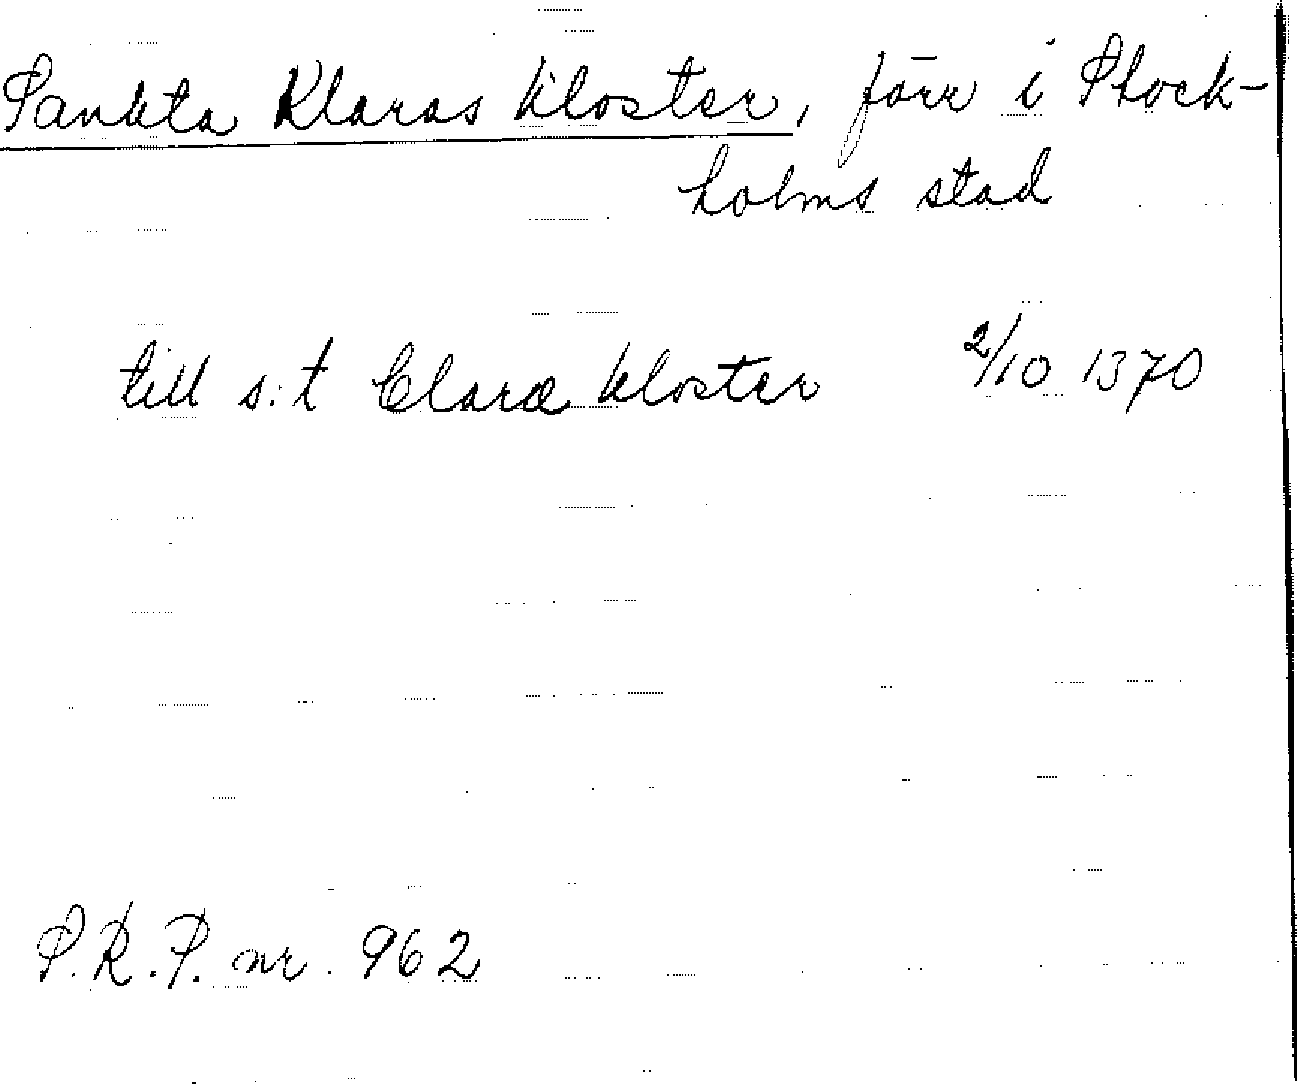 Sankta Klaras kloster, förr i Stock-
holms stad
till s:t Claræ kloster 2/10 1370
S.R.P. nr. 962